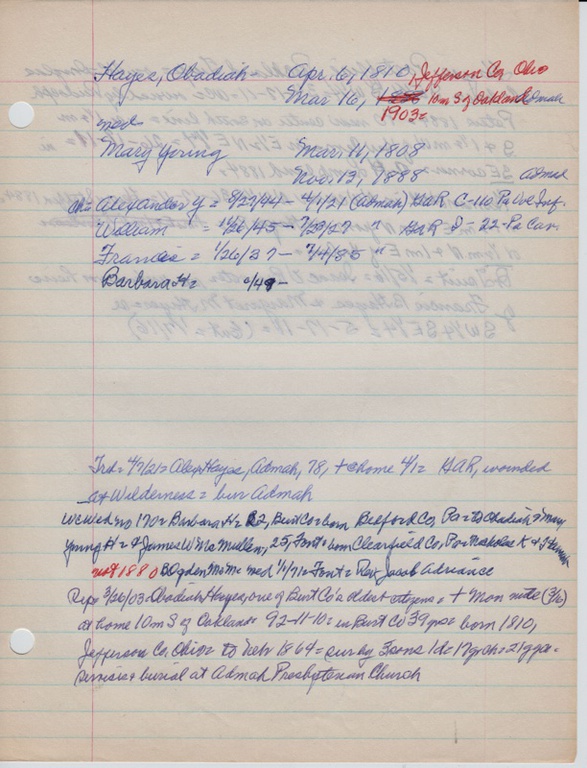 Hayes, Obadiah - Apr. 6, 1810, Jefferson Co, Ohio
Mar 16, 1886 10m S of Oakland Admah
1903=
med
Mary Young Mar. 11, 1808
Nov. 13, 1888 Admah
ch= Alexander Y = 8/27/44 - 4/1/21 (Admah) GaR C-110 Pa Vol Inf.
William = 11/26/45 - 7/29/27 " GaR I - 22 - Pa Cav.
Francis = 1/26/37 - 7/4/85 "
Barbara H= /49 -
Trd= 4/7/21= Alex Hayes, Admah, 78, + home 4/1= GaR, wounded
at Wilderness= bur Admah
170= Barbara H= 22, Burt Co= born Bedford Co, Pa= to Obadiah & Mary
Young H= & James W McMullen, 25, Font= born Clearfield Co, Pa= Nicholas K &
not 1880 B Ogden Mc Mc med 1/1/71= Font= Rev Jacob Adriance
Rep= 3/26/03 Obadiah Hayes, one of Burt Co's oldest citizens = + Mon nite (3/16)
at home 10m S of Oakland= 92-11-10= in Burt Co 39 yrs= born 1810,
Jefferson Co. Ohio= to Nebr 1864= sur by 3 sons 1d= 17 grch= 21 ggch=
services & burial at Admah Presbyterian Church